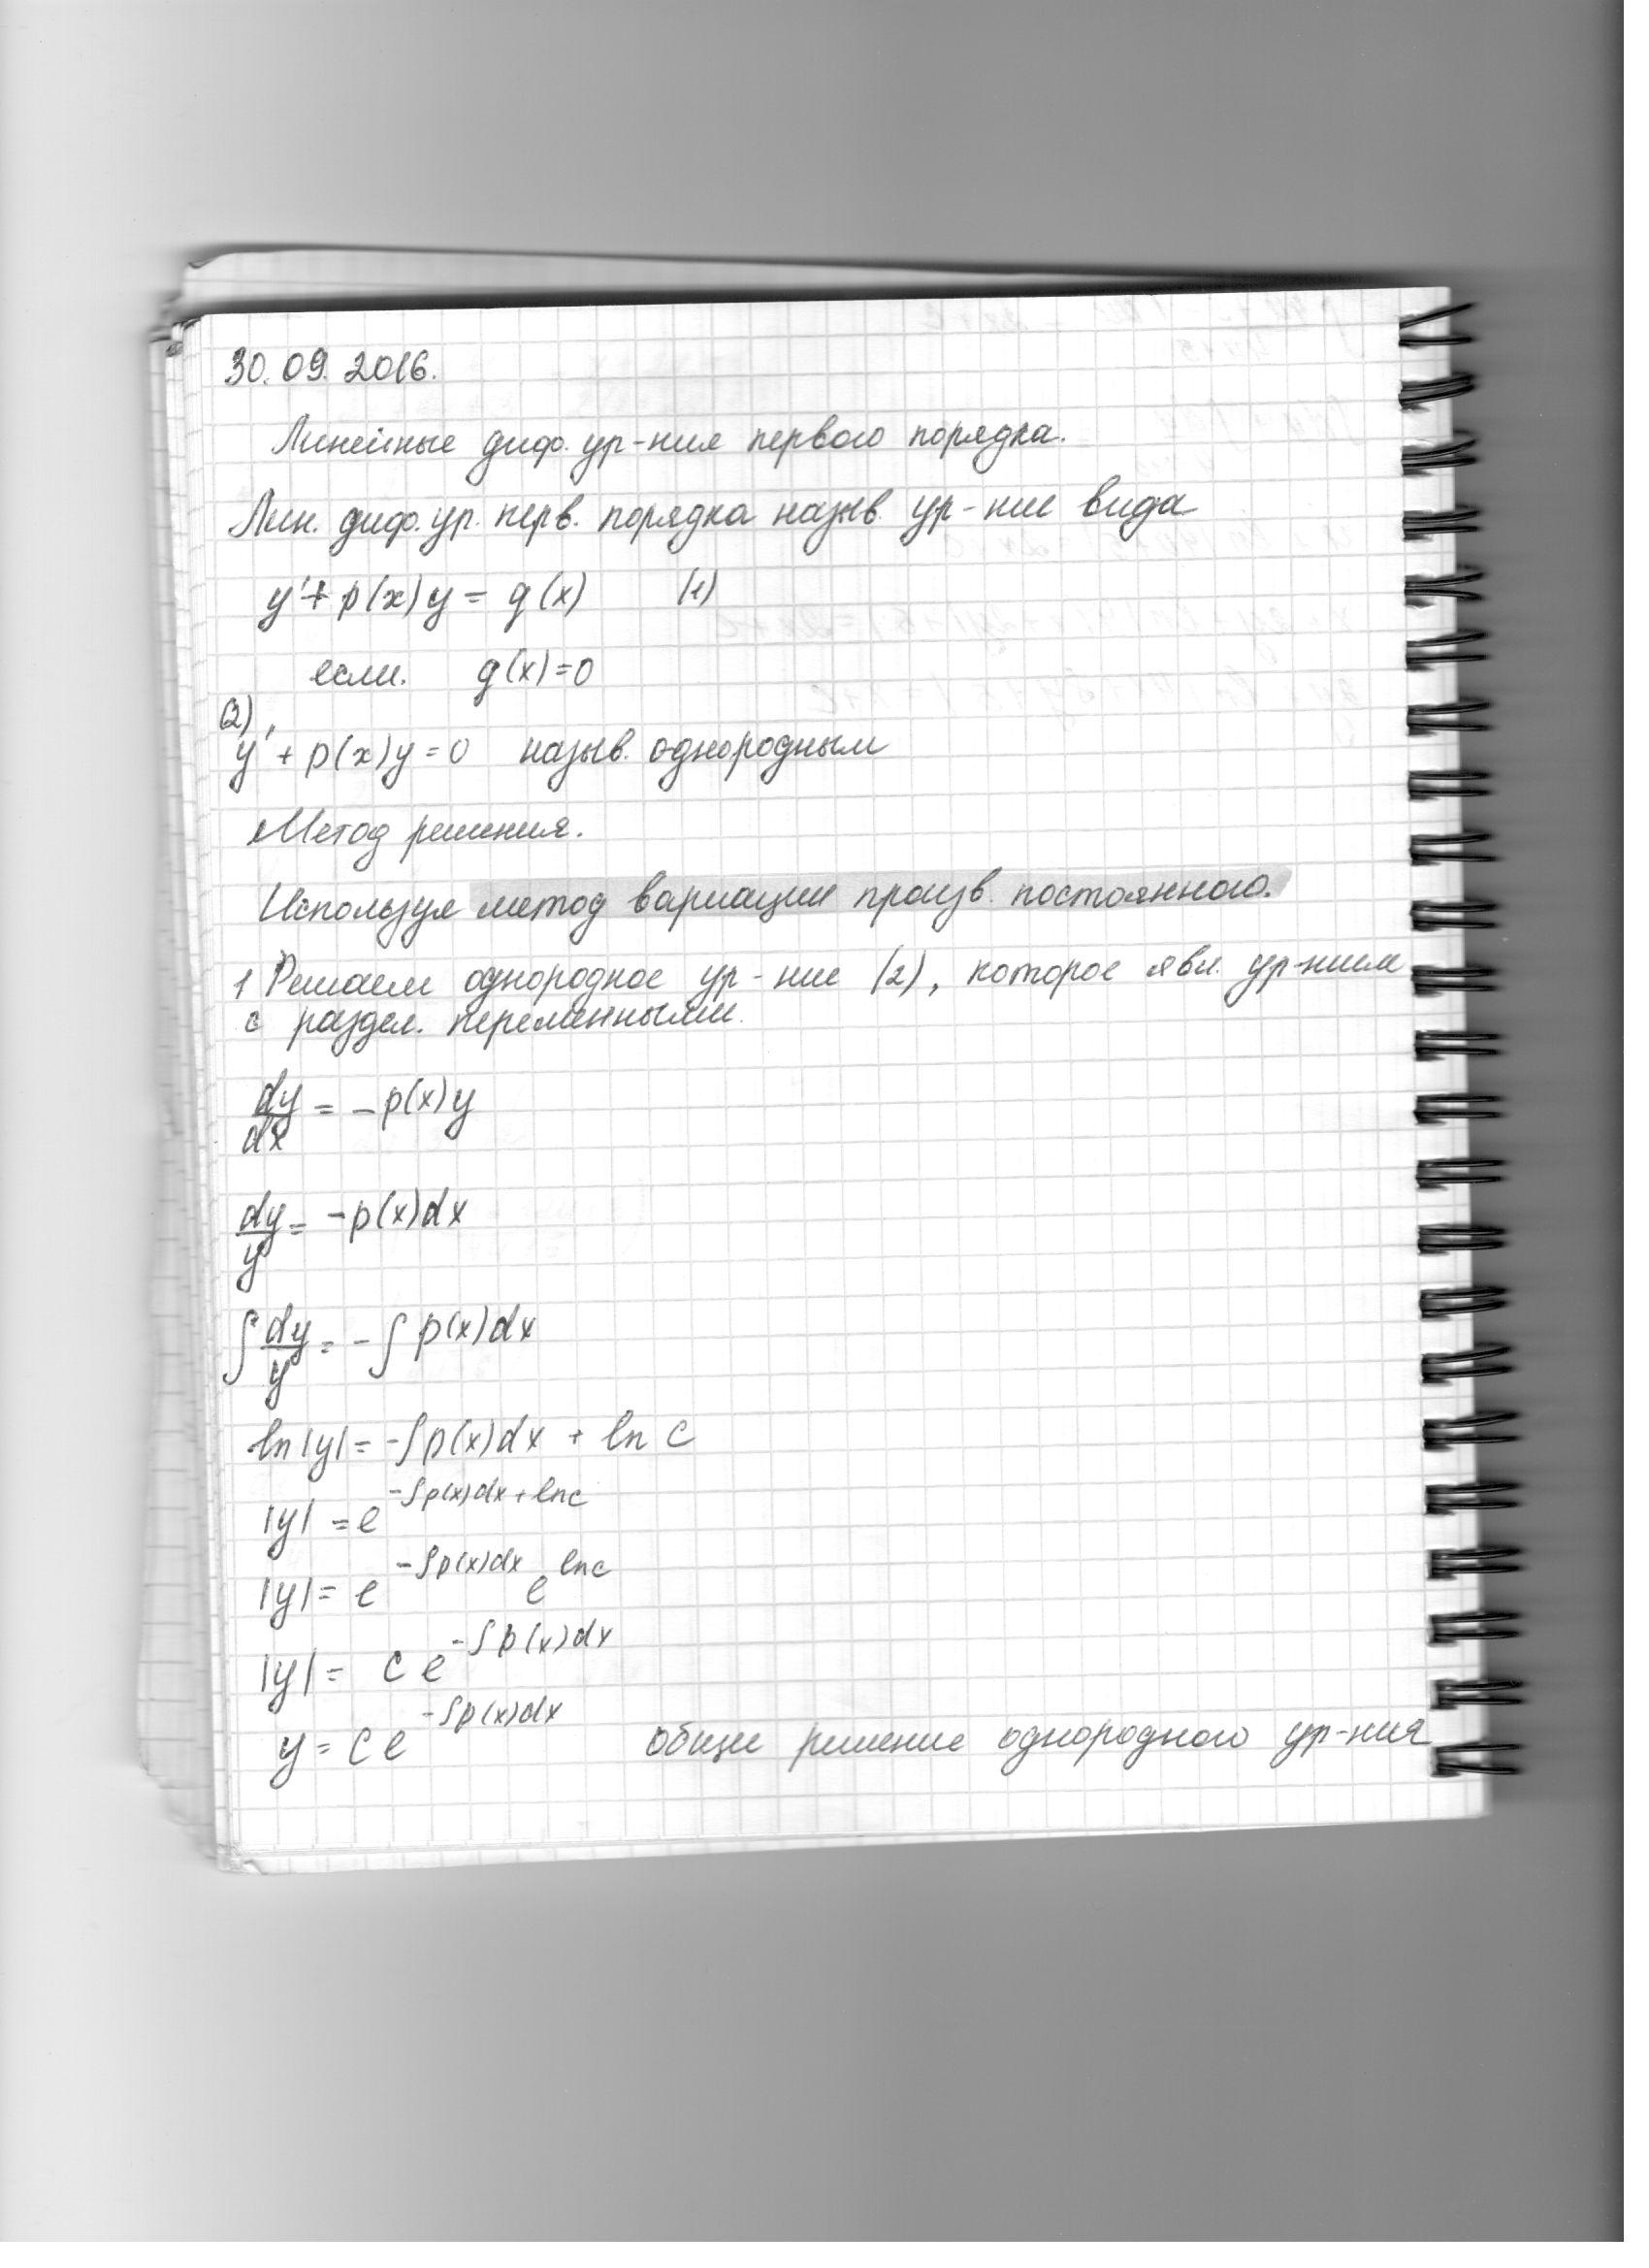 30.09.2016.
Линейные диф. ур-ния первого порядка.
Лин. диф. ур. перв. порядка назыв. ур-ние вида
y' + p(x)y = g(x) (1)
если. g(x)=0
(2)
y' + p(x)y = 0 назыв. однородным
Метод решения.
Используя метод вариации произв. постоянного.
1 Решаем однородное ур-ние (2), которое явл. ур-нием
с раздел. переменными.
dy/dx = -p(x)y
dy/y = -p(x)dx
∫dy/y = -∫p(x)dx
ln|y| = -∫p(x)dx + ln c
|y| = e^(-∫p(x)dx + lnc)
|y| = e^(-∫p(x)dx) e^(lnc)
|y| = c e^(-∫p(x)dx)
y = c e^(-∫p(x)dx) общее решение однородного ур-ния